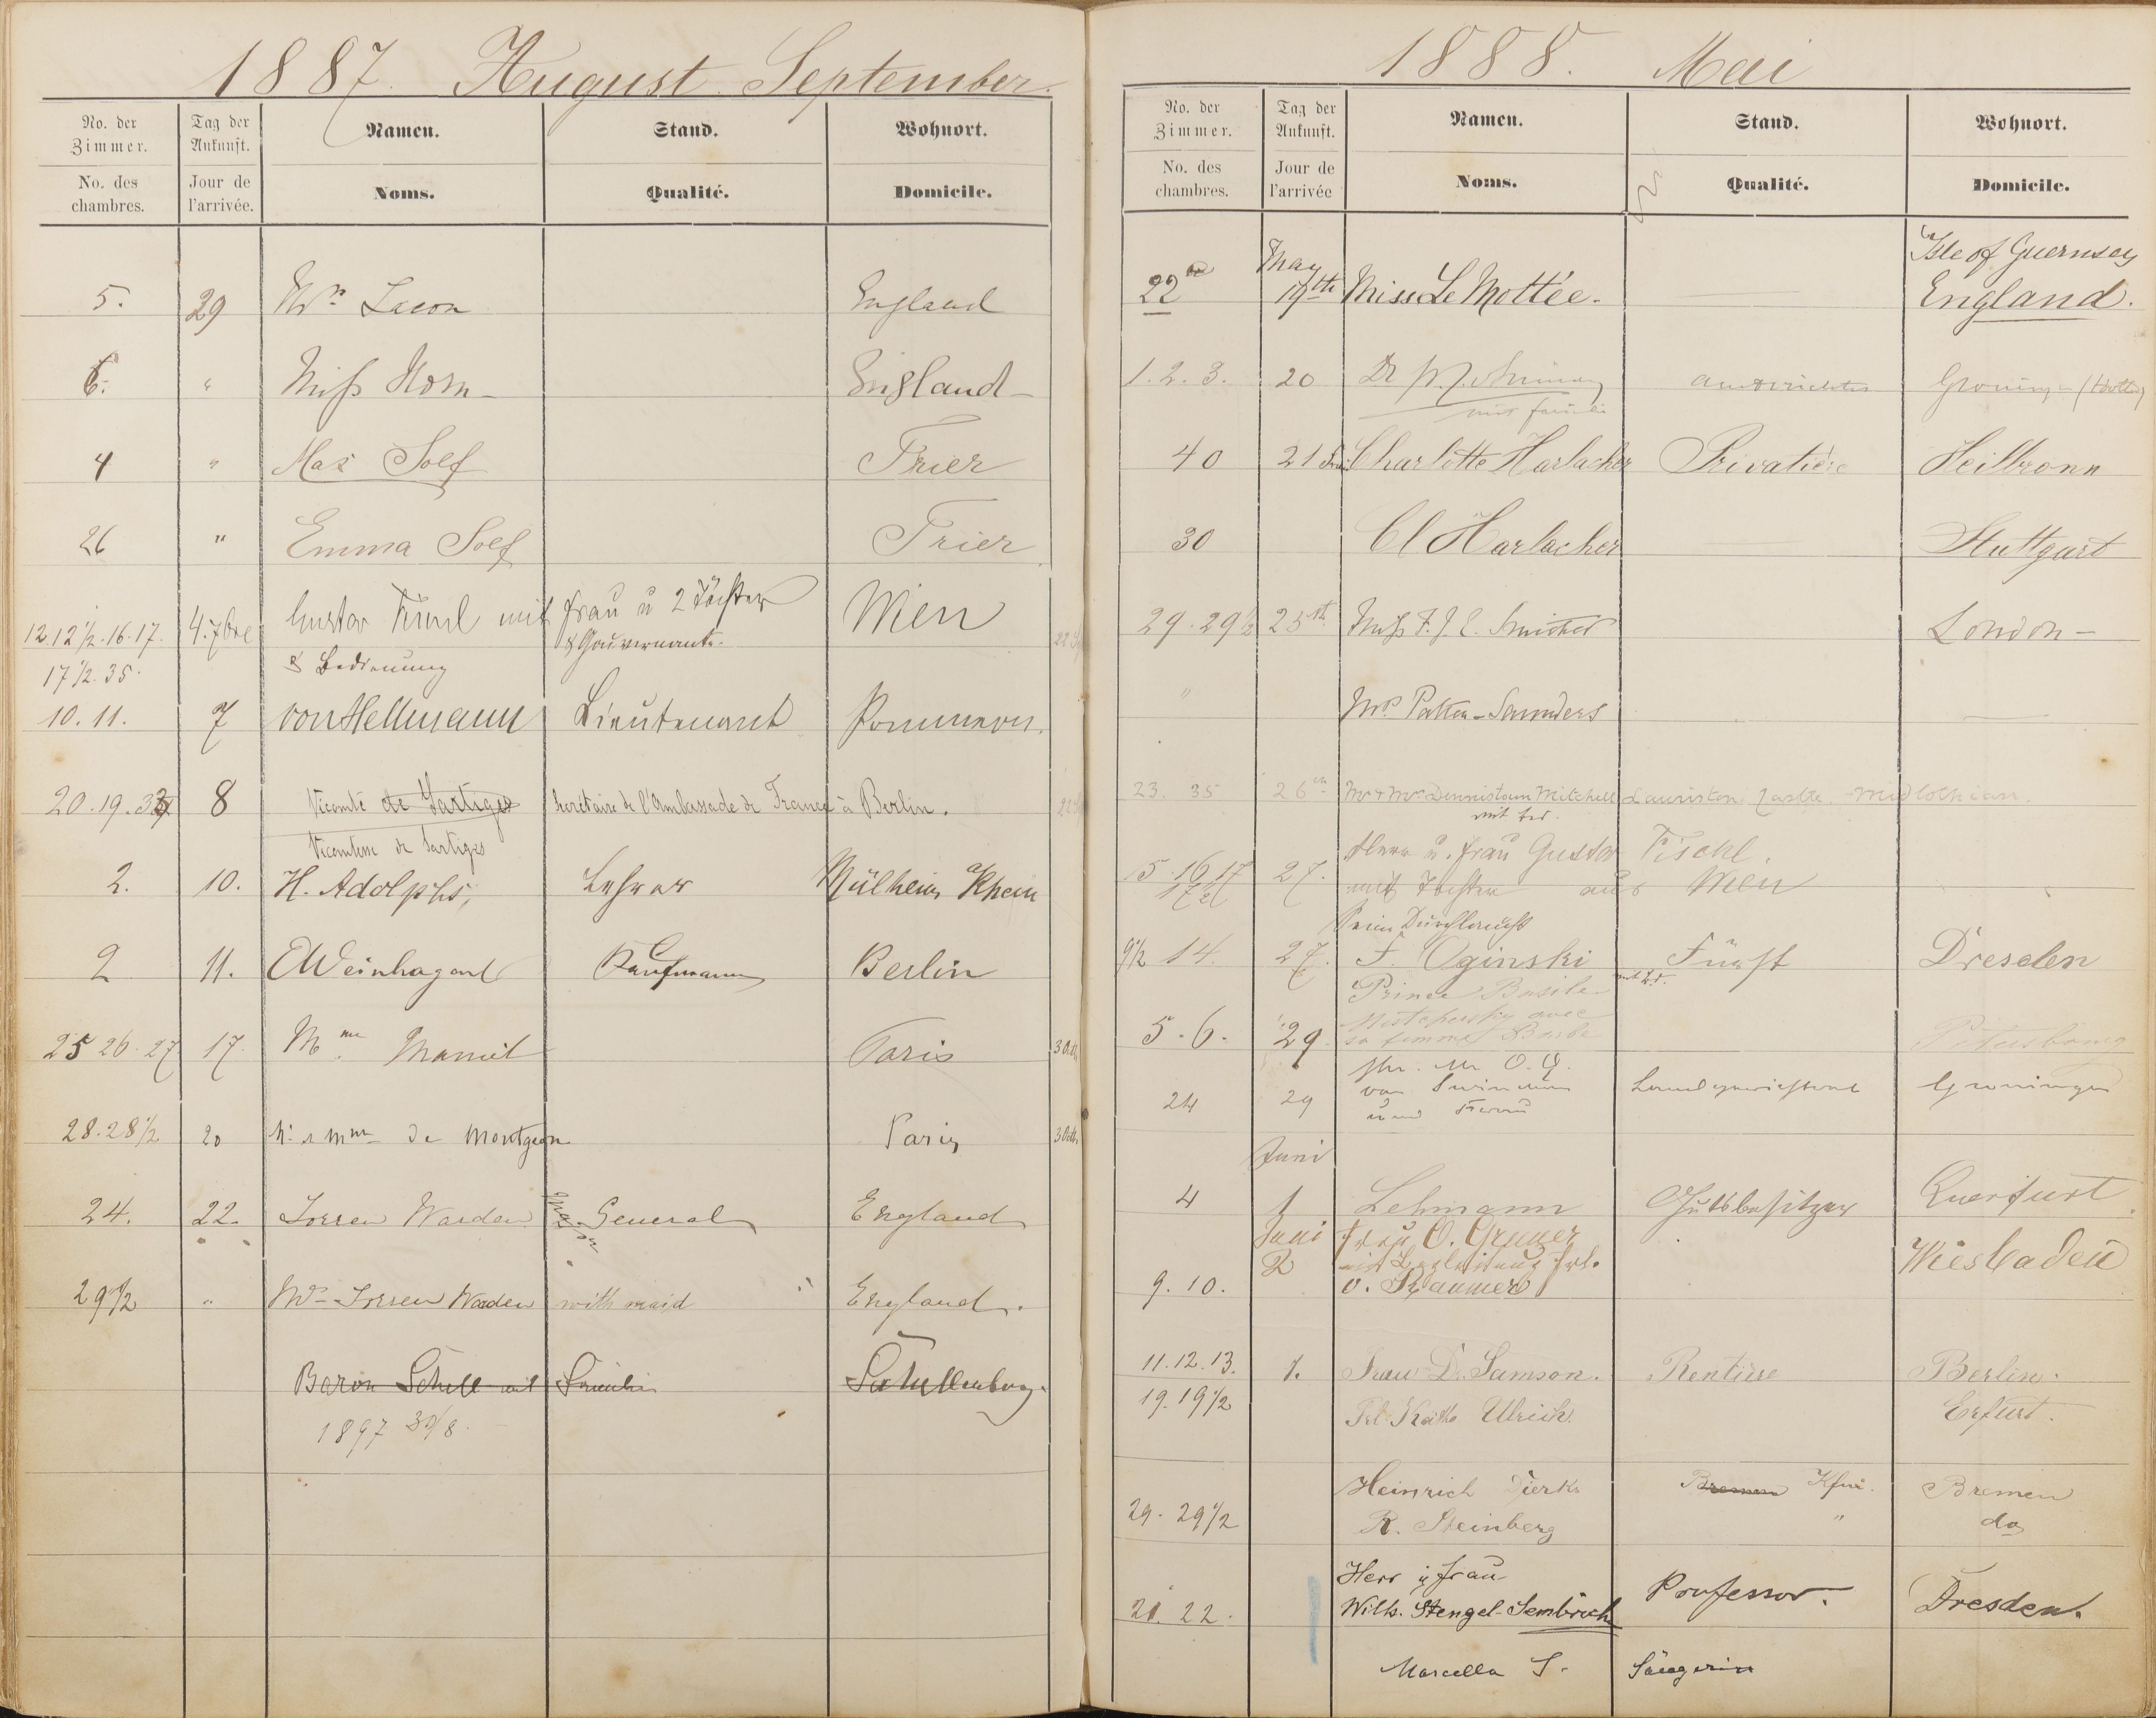 1887. August September.
No. der Zimmer. Tag der Ankunft. Namen. Stand. Wohnort.
No. des chambres. Jour de l'arrivée. Noms. Qualité. Domicile.
5. 29 Mrs Lacon England
6. " Miss Horn England
4 " Max Solf Trier
26 " Emma Solf Trier
12 12 1/2. 16. 17. 4. 7bre Gustav mit Frau u 2 Töchter Wien
17 1/2. 35. & Bedienung & Gouvernante.
10. 11. 7 von Hellmann Lieutenant Pommern.
20. 19. 8 Vicomte de Sartiges Secrétaire de l'Ambassade de France à Berlin.
Vicomtesse de Sartiges
2. 10. H. Adolphs, Lehrer Mülheim Rhein
2 11. Kaufmann Berlin
25 26. 27 17. Mme Paris
28. 28 1/2 20 M. & Mme de Montgeon Paris
24. 22. Warden Major General England
29 1/2 " Mrs Warden with maid England.
Baron Schell mit Familie Schellenberg.
1897 30/8.
1888. Mai
No. der Zimmer. Tag der Ankunft. Namen. Stand. Wohnort.
No. des chambres. Jour de l'arrivée Noms. Qualité. Domicile.
May Isle of Guernsey
22 19th Miss Le Mottée. England.
1. 2. 3. 20 Dr
40 21 Charlotte Harlacher Privatière Heilbronn
30 Cl Harlacher Stuttgart
29. 29 1/2 25th Miss F. J. E. London
" Mrs Patten-Saunders
23. 35 26th Mr & Mrs Dennistoun Mitchell Lauriston Castle. Midlothian.
mit Bed.
Herr u. Frau Gustav Tischl.
5. 16 17 27. mit Töchter aus Wien
17 1/2
Seine Durchlaucht
9 1/2 14. 27. F. Oginski Fürst Dresden
Prince Basile
5. 6. 29. Mestchersky avec Petersbourg
sa femme
24 29 von und Frau Groningen
Juni
4 1 Lehmann Gutsbesitzer Querfurt
Juni Frau O. Wiesbaden
2 mit Begleitung Frl.
9. 10. v. Raumer
11. 12. 13. 1. Frau Dr. Samson. Rentiere Berlin.
19. 19 1/2 Frl. Käthe Ulrich. Erfurt.
Heinrich Dierks Bremen Kfm. Bremen
29. 29 1/2 R. Steinberg " do
Herr u Frau
21. 22. Wilh. Stengel-Sembrich Professor. Dresden.
Marcella S. Sängerin